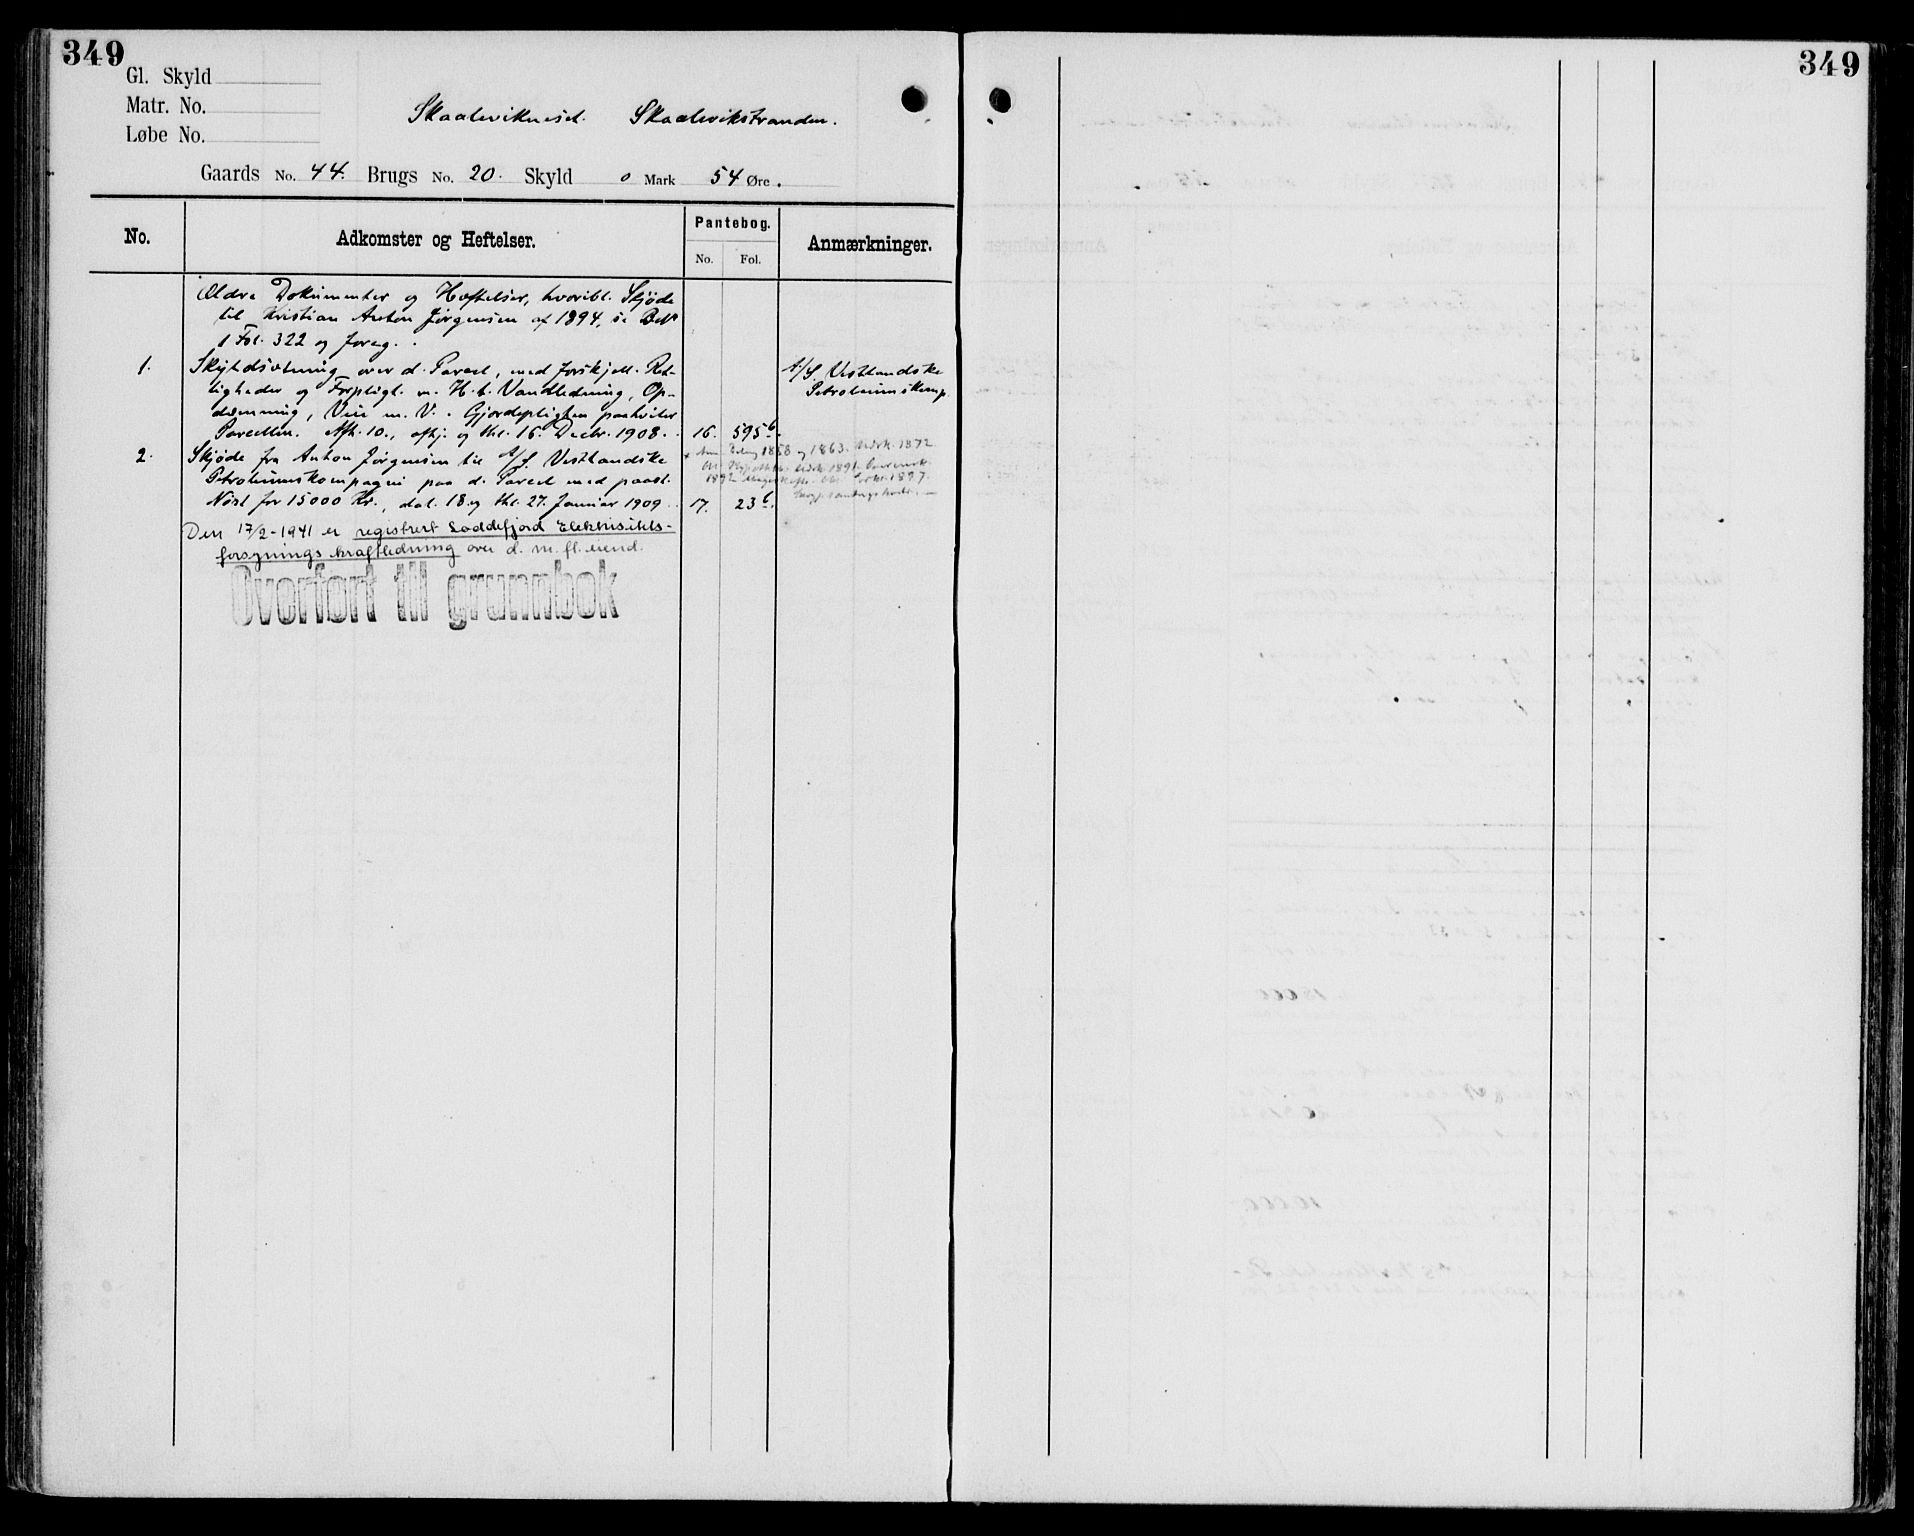 349
349
Gl. Skyld
Matr. No.
Løbe No.
Skaaleviknesset. Skaalevikstranden.
Gaards No. 44. Brugs No. 20. Skyld 0 Mark 54 Øre.
No. Adkomster og Heftelser. Pantebog. No. Fol. Anmærkninger.
Ældre Dokumenter og Hæftelser, hvoribl. Skjøde
til Kristian Anton Jørgensen af 1894, se
1 Fol. 322 og foreg.
1. Skyldsætning over d. Parcel, med forskjell. Ret- A/S. Vestlandske
tigheder og Forpligt. m. H. t. Vandledning, Op- Petroleumskomp.
dæmning, Veie m. V. Gjerdepligten paahviler
Parcellen. Afh. 10., afhj. og thl. 16. Decbr. 1908. 16. 595 b.
2. Skjøde fra Anton Jørgensen til A/S. Vestlandske
1858 og 1863. 1872
Petroleumskompagni paa d. Parcel med paast.
1891.
1892 1897.
Nöst for 15000 Kr., dat. 18 og thl. 27. Januar 1909. 17. 23 b.
Den 17/2-1941 er registrert Loddefjord Elektrisitets-
forsynings kraftledning over d. m. fl. eiend.
Overført til grunnbok